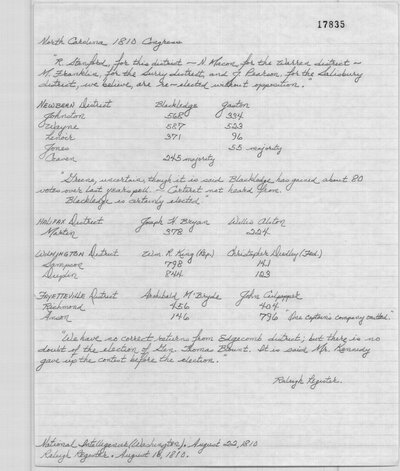 17835
North Carolina 1810 Congress
"R. Stanford, for this district — N. Macon for the Warren district —
M. Franklin, for the Surry district, and J. Pearson, for the Salisbury
district, we believe, are re-elected without opposition."
Newbern District Blackledge Gaston
Johnston 568 334
Wayne 587 523
Lenoir 371 96
Jones 55 majority
Craven 245 majority
"Greene, uncertain, though it is said Blackledge has gained about 80
votes over last years poll. — Carteret not heard from.
Blackledge is certainly elected."
Halifax District Joseph H. Bryan Willis Alston
Martin 378 224
Wilmington District Wm R. King (Rep.) Christopher Dudley (Fed.)
Sampson 798 141
Duplin 844 123
Fayetteville District Archibald McBryde John Culpepper
Richmond 404
Anson 146 796 "One captain's company omitted."
"We have no correct return from Edgecomb district; but there is no
doubt of the election of Gen. Thomas Blount. It is said Mr. Kennedy
gave up the contest before the election."
Raleigh Register.
National Intelligencer (Washington). August 22, 1810
Raleigh Register. August 16, 1810.